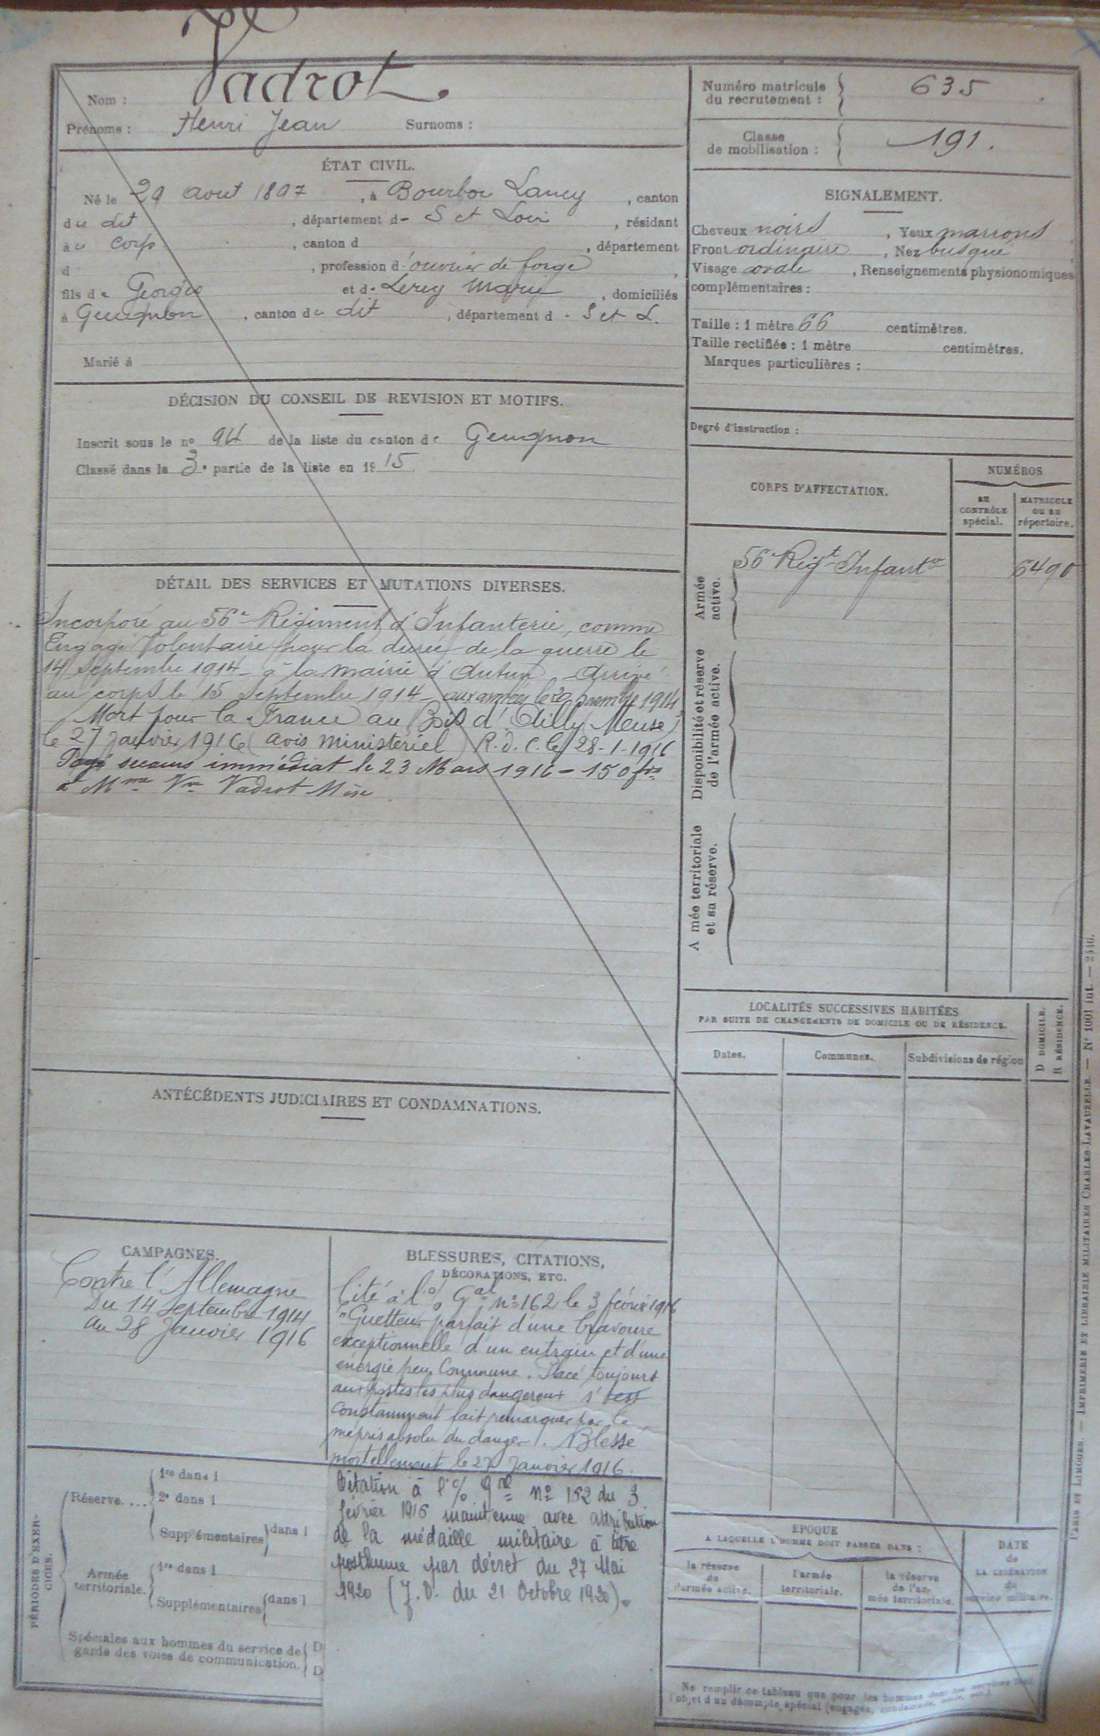 Nom : Vadrot.
Prénoms : Henri Jean Surnoms :
ÉTAT CIVIL.
Né le 29 août 1897, à Bourbon Lancy, canton
du dit, département d- S et Loire, résidant
au corps, canton d , département
d , profession d'ouvrier de forge,
fils de Georges et de Leroy Marie, domiciliés
à Gueugnon, canton du dit, département d - S et L.
Marié à
DÉCISION DU CONSEIL DE REVISION ET MOTIFS.
Inscrit sous le no 94 de la liste du canton de Gueugnon
Classé dans la 3e partie de la liste en 1915
DÉTAIL DES SERVICES ET MUTATIONS DIVERSES.
Incorporé au 56e Régiment d'Infanterie, comme
Engagé Volontaire pour la durée de la guerre le
14 Septembre 1914 à la mairie d'Autun Arrivé
au corps le 15 Septembre 1914 aux armées le 1914
Mort pour la France au Bois d' (Meuse)
le 27 Janvier 1916 (avis ministériel) R.d.C. le 28-1-1916
Payé secours immédiat le 23 Mars 1916 - 150 frs
à Mme Vve Vadrot Mère
ANTÉCÉDENTS JUDICIAIRES ET CONDAMNATIONS.
CAMPAGNES.
Contre l'Allemagne
Du 14 Septembre 1914
au 28 Janvier 1916
PÉRIODES D'EXERCICES.
Réserve....
1re dans l
2e dans l
Supplémentaires dans l
Armée territoriale.
1re dans l
Supplémentaires dans l
Spéciales aux hommes du service de
garde des voies de communication.
D
D
BLESSURES, CITATIONS,
DÉCORATIONS, ETC.
Cité à l'o/ Gal no 162 le 3 février 1916
"Guetteur parfait d'une bravoure
exceptionnelle d'un entrain et d'une
énergie peu Commune. Placé toujours
aux postes les plus dangereux s'est
constamment fait remarquer par le
mépris absolu du danger. Blessé
mortellement le 27 Janvier 1916.
Citation à l'o/ Gral no 152 du 3
février 1916 maintenue avec attribution
de la médaille militaire à titre
posthume par décret du 27 Mai
1920 (J.O. du 21 Octobre 1920).
Numéro matricule du recrutement : 635
Classe de mobilisation : 191.
SIGNALEMENT.
Cheveux noirs, Yeux marrons
Front ordinaire, Nez busqué
Visage ovale, Renseignements physionomiques
complémentaires :
Taille : 1 mètre 66 centimètres.
Taille rectifiée : 1 mètre centimètres.
Marques particulières :
Degré d'instruction :
CORPS D'AFFECTATION.
NUMÉROS
AU CONTRÔLE spécial.
MATRICULE OU AU répertoire.
Armée active.
56e Rigt Infantie 6490
Disponibilité et réserve de l'armée active.
A mée territoriale et sa réserve.
LOCALITÉS SUCCESSIVES HABITÉES
PAR SUITE DE CHANGEMENTS DE DOMICILE OU DE RÉSIDENCE.
D DOMICILE.
R RÉSIDENCE.
Dates.
Communes.
Subdivisions de région
ÉPOQUE
A LAQUELLE L'HOMME DOIT PASSER DANS :
la réserve de l'armée active.
l'armée territoriale.
la réserve de l'armée territoriale.
DATE de LA LIBÉRATION du service militaire.
Ne remplir ce tableau que pour les hommes dont les services font
l'objet d'un décompte spécial
PARIS ET LIMOGES. — IMPRIMERIE ET LIBRAIRIE MILITAIRES CHARLES-LAVAUZELLE. — N° 1001 int. —